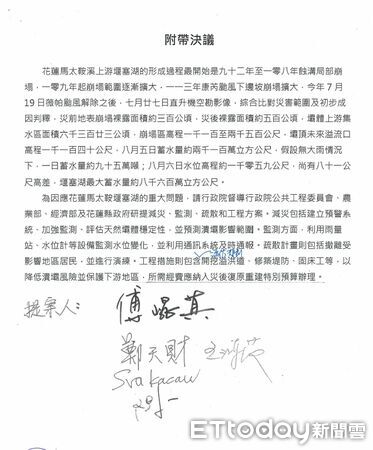 附帶決議
花蓮馬太鞍溪上游堰塞湖的形成過程最開始是九十二年至一零八年蝕溝局部崩
塌,一零九年起崩塌範圍逐漸擴大,一一三年康芮颱風下邊坡崩塌擴大,今年7月
19日薇帕颱風解除之後,七月廿七日直升機空勘影像,綜合比對災害範圍及初步成
因判釋,災前地表崩塌裸露面積約三百公頃,災後裸露面積約五百公頃,壩體上游集
水區面積六千三百廿三公頃,崩塌區高程一千一百至兩千五百公尺,壩頂未來溢流口
高程一千一百四十公尺,八月五日蓄水量約兩千一百萬立方公尺,假設無大雨情況
下,一日蓄水量約九十五萬噸;八月六日水位高程約一千零五九公尺,尚有八十一公
尺高差,堰塞湖最大蓄水量約八千六百萬立方公尺。
為因應花蓮馬太鞍堰塞湖的重大問題,請行政院督導行政院公共工程委員會、農
業部、經濟部及花蓮縣政府研提減災、監測、疏散和工程方案。減災包括建立預警系
統、加強監測、評估天然壩體穩定性,並預測潰壩影響範圍。監測方面,利用雨量
站、水位計等設備監測水位變化,並利用通訊系統及時通報。疏散計畫則包括撤離受
影響地區居民,並進行演練。工程措施則包含開挖溢洪道、修築堤防、固床工等,以
降低潰壩風險並保護下游地區,所需經費應納入災後復原重建特別預算辦理。
提案人:
傅崐萁
鄭天財
Sra Kacaw
ETtoday新聞雲